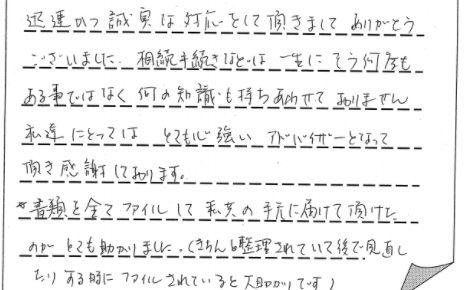 迅速かつ誠実な対応をして頂きまして ありがとう
ございました。相続手続きなどは 一生にそう何度も
ある事ではなく 何の知識も持ちあわせて おりません
私達にとっては とても心強い アドバイザーとなって
頂き感謝しております。
*書類を全てファイルして 私共の手元に届けて頂けた
のが とても助かりました。(きちんと整理されていて後で見直し
たりする時に ファイルされていると 大助かりです)